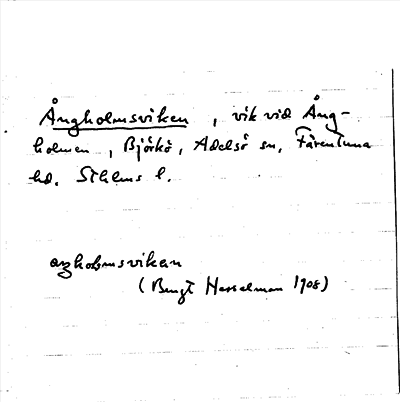 Ångholmsviken, vik vid Ång-
holmen, Björkö, Adelsö sn, Färentuna
hd. Sthlms l.
ångholmsviken
(Bengt Hesselman 1908)